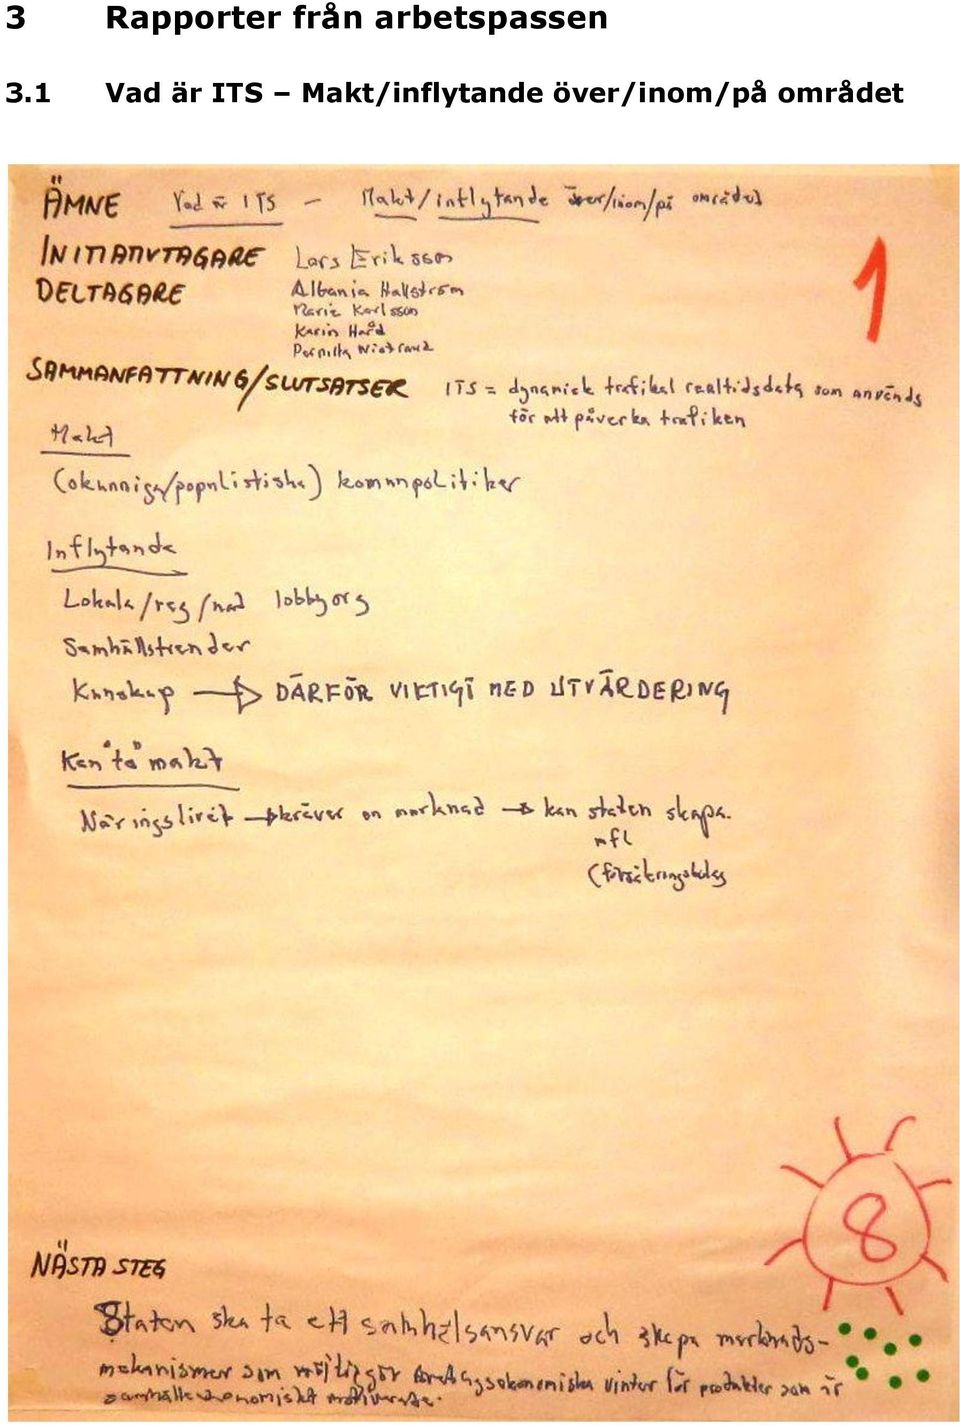 3 Rapporter från arbetspassen
3.1 Vad är ITS – Makt/inflytande över/inom/på området
ÄMNE Vad är ITS – Makt/inflytande över/inom/på området
INITIATIVTAGARE Lars Eriksson
1
DELTAGARE Albania Hallström
Marie Karlsson
Karin Hård
Pernilla
SAMMANFATTNING/SLUTSATSER ITS = dynamisk trafikal realtidsdata som används
för att påverka trafiken
Makt
(okunniga/populistiska) kommunpolitiker
Inflytande
Lokala/reg/nat lobbyorg
Samhällstrender
Kunskap → DÄRFÖR VIKTIGT MED UTVÄRDERING
Kan "ta" makt
Näringslivet → kräver en marknad → kan staten skapa.
mfl
(försäkringsbolag
8
NÄSTA STEG
Staten ska ta ett samhälsansvar och skapa marknads-
mekanismer som möjliggör företagsekonomiska vinter för produkter som är
samhällsekonomiskt motiverade.